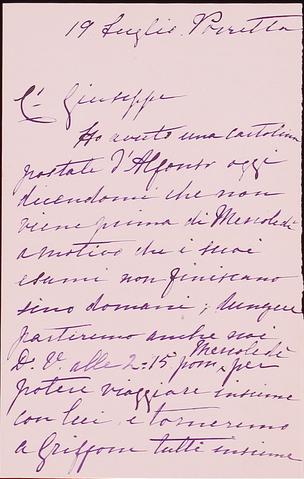 19 Luglio. Porretta
C.' Giuseppe
Ho avuto una cartolina
postale d'Alfonso oggi
dicendomi che non
viene prima di Mercoledì
a motivo che i suoi
esami non finiscano
sino domani; dunque
partiremo anche noi
D. V. alle 2:15 pom. Mercoledì per
potere viaggiare insieme
con lui e torneremo
a Griffone tutti insieme